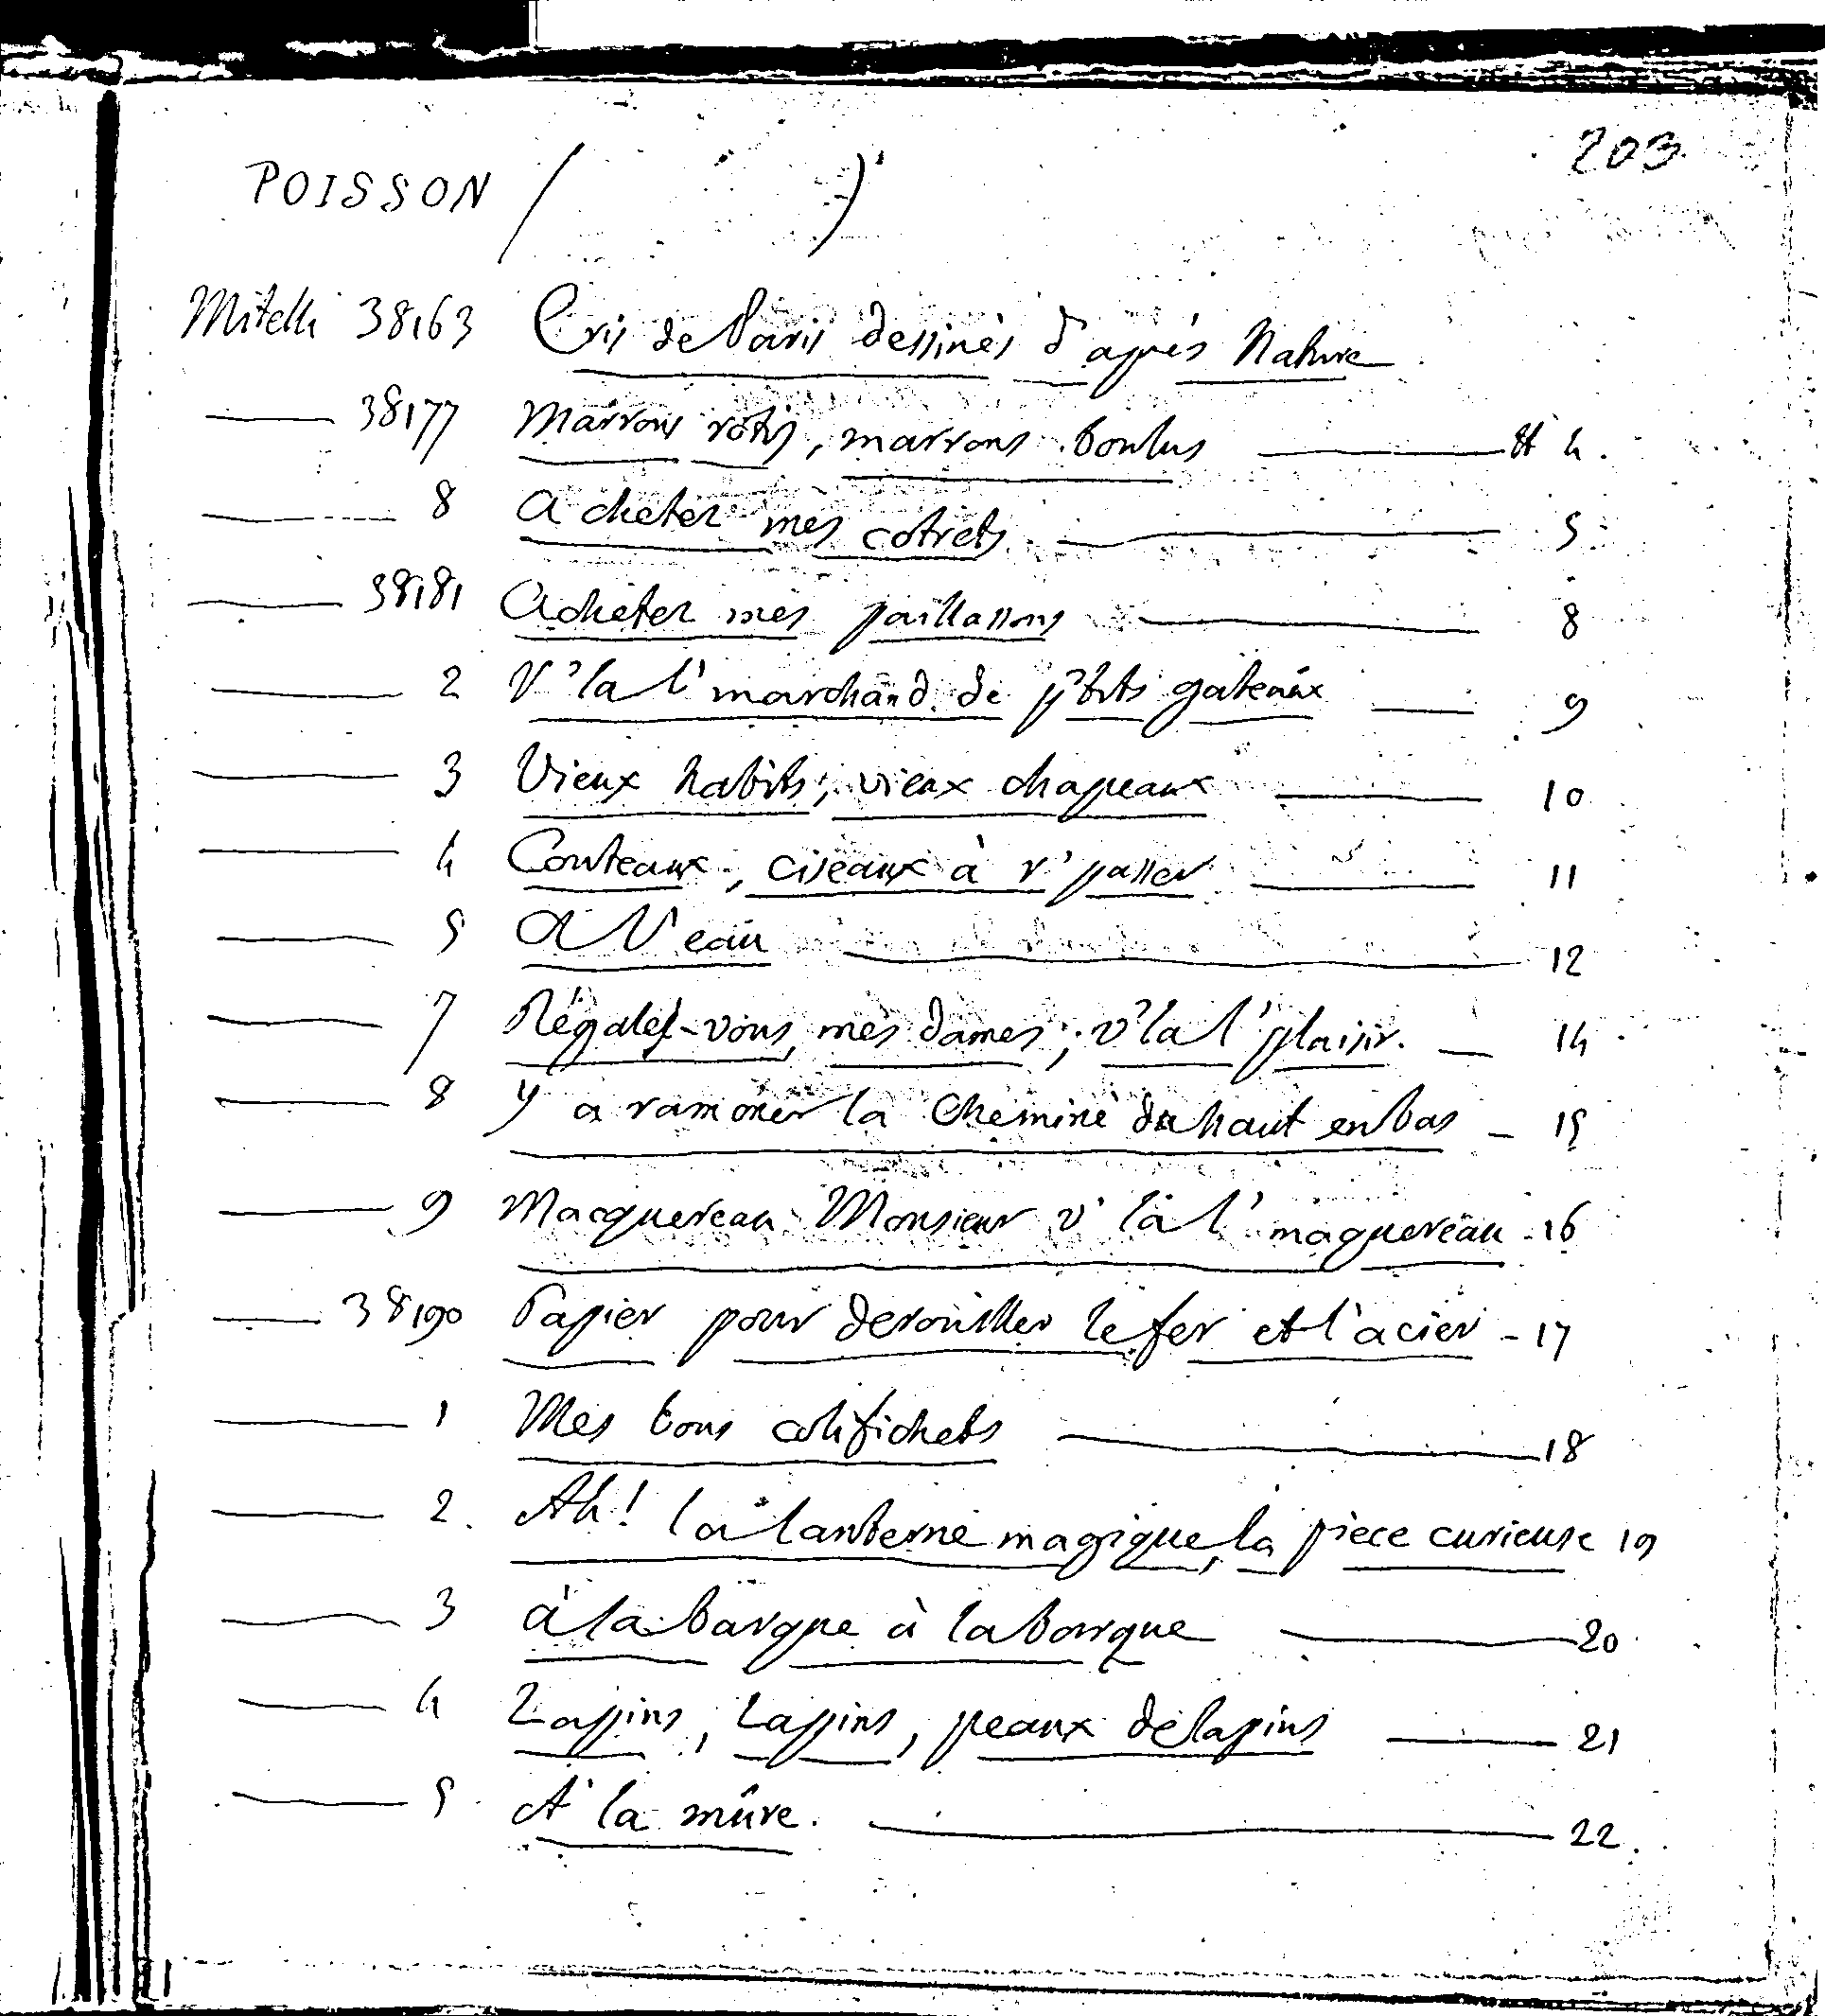 203
POISSON ( )
Mitelli 38163 Cris de Paris dessinés d'après Nature
——— 38177 Marrons rotis, marrons boulus ——— 4.
——— 8 Acheter mes cotrets ——— 5
——— 38181 Acheter mes paillassons ——— 8
——— 2 V'la l'marchand de p'tits gateaux ——— 9
——— 3 Vieux habits; vieux chapeaux ——— 10
——— 4 Couteaux, ciseaux à r'passer ——— 11
——— 5 A l'eau ——— 12
——— 7 Régalez-vous, mes dames; v'la l'plaisir. — 14
——— 8 Y a ramoner la cheminé du haut en bas — 15
——— 9 Macquereau Monsieur v'là l'maquereau - 16
——— 38190 Papier pour derouiller le fer et l'acier - 17
——— 1 Mes bons colifichets ——— 18
——— 2. Ah! la lanterne magique, la piece curieuse 19
——— 3 à la barque à la barque ——— 20
——— 4 Lapins, Lapins, peaux de lapins ——— 21
——— 5 A la mûre. ——— 22.